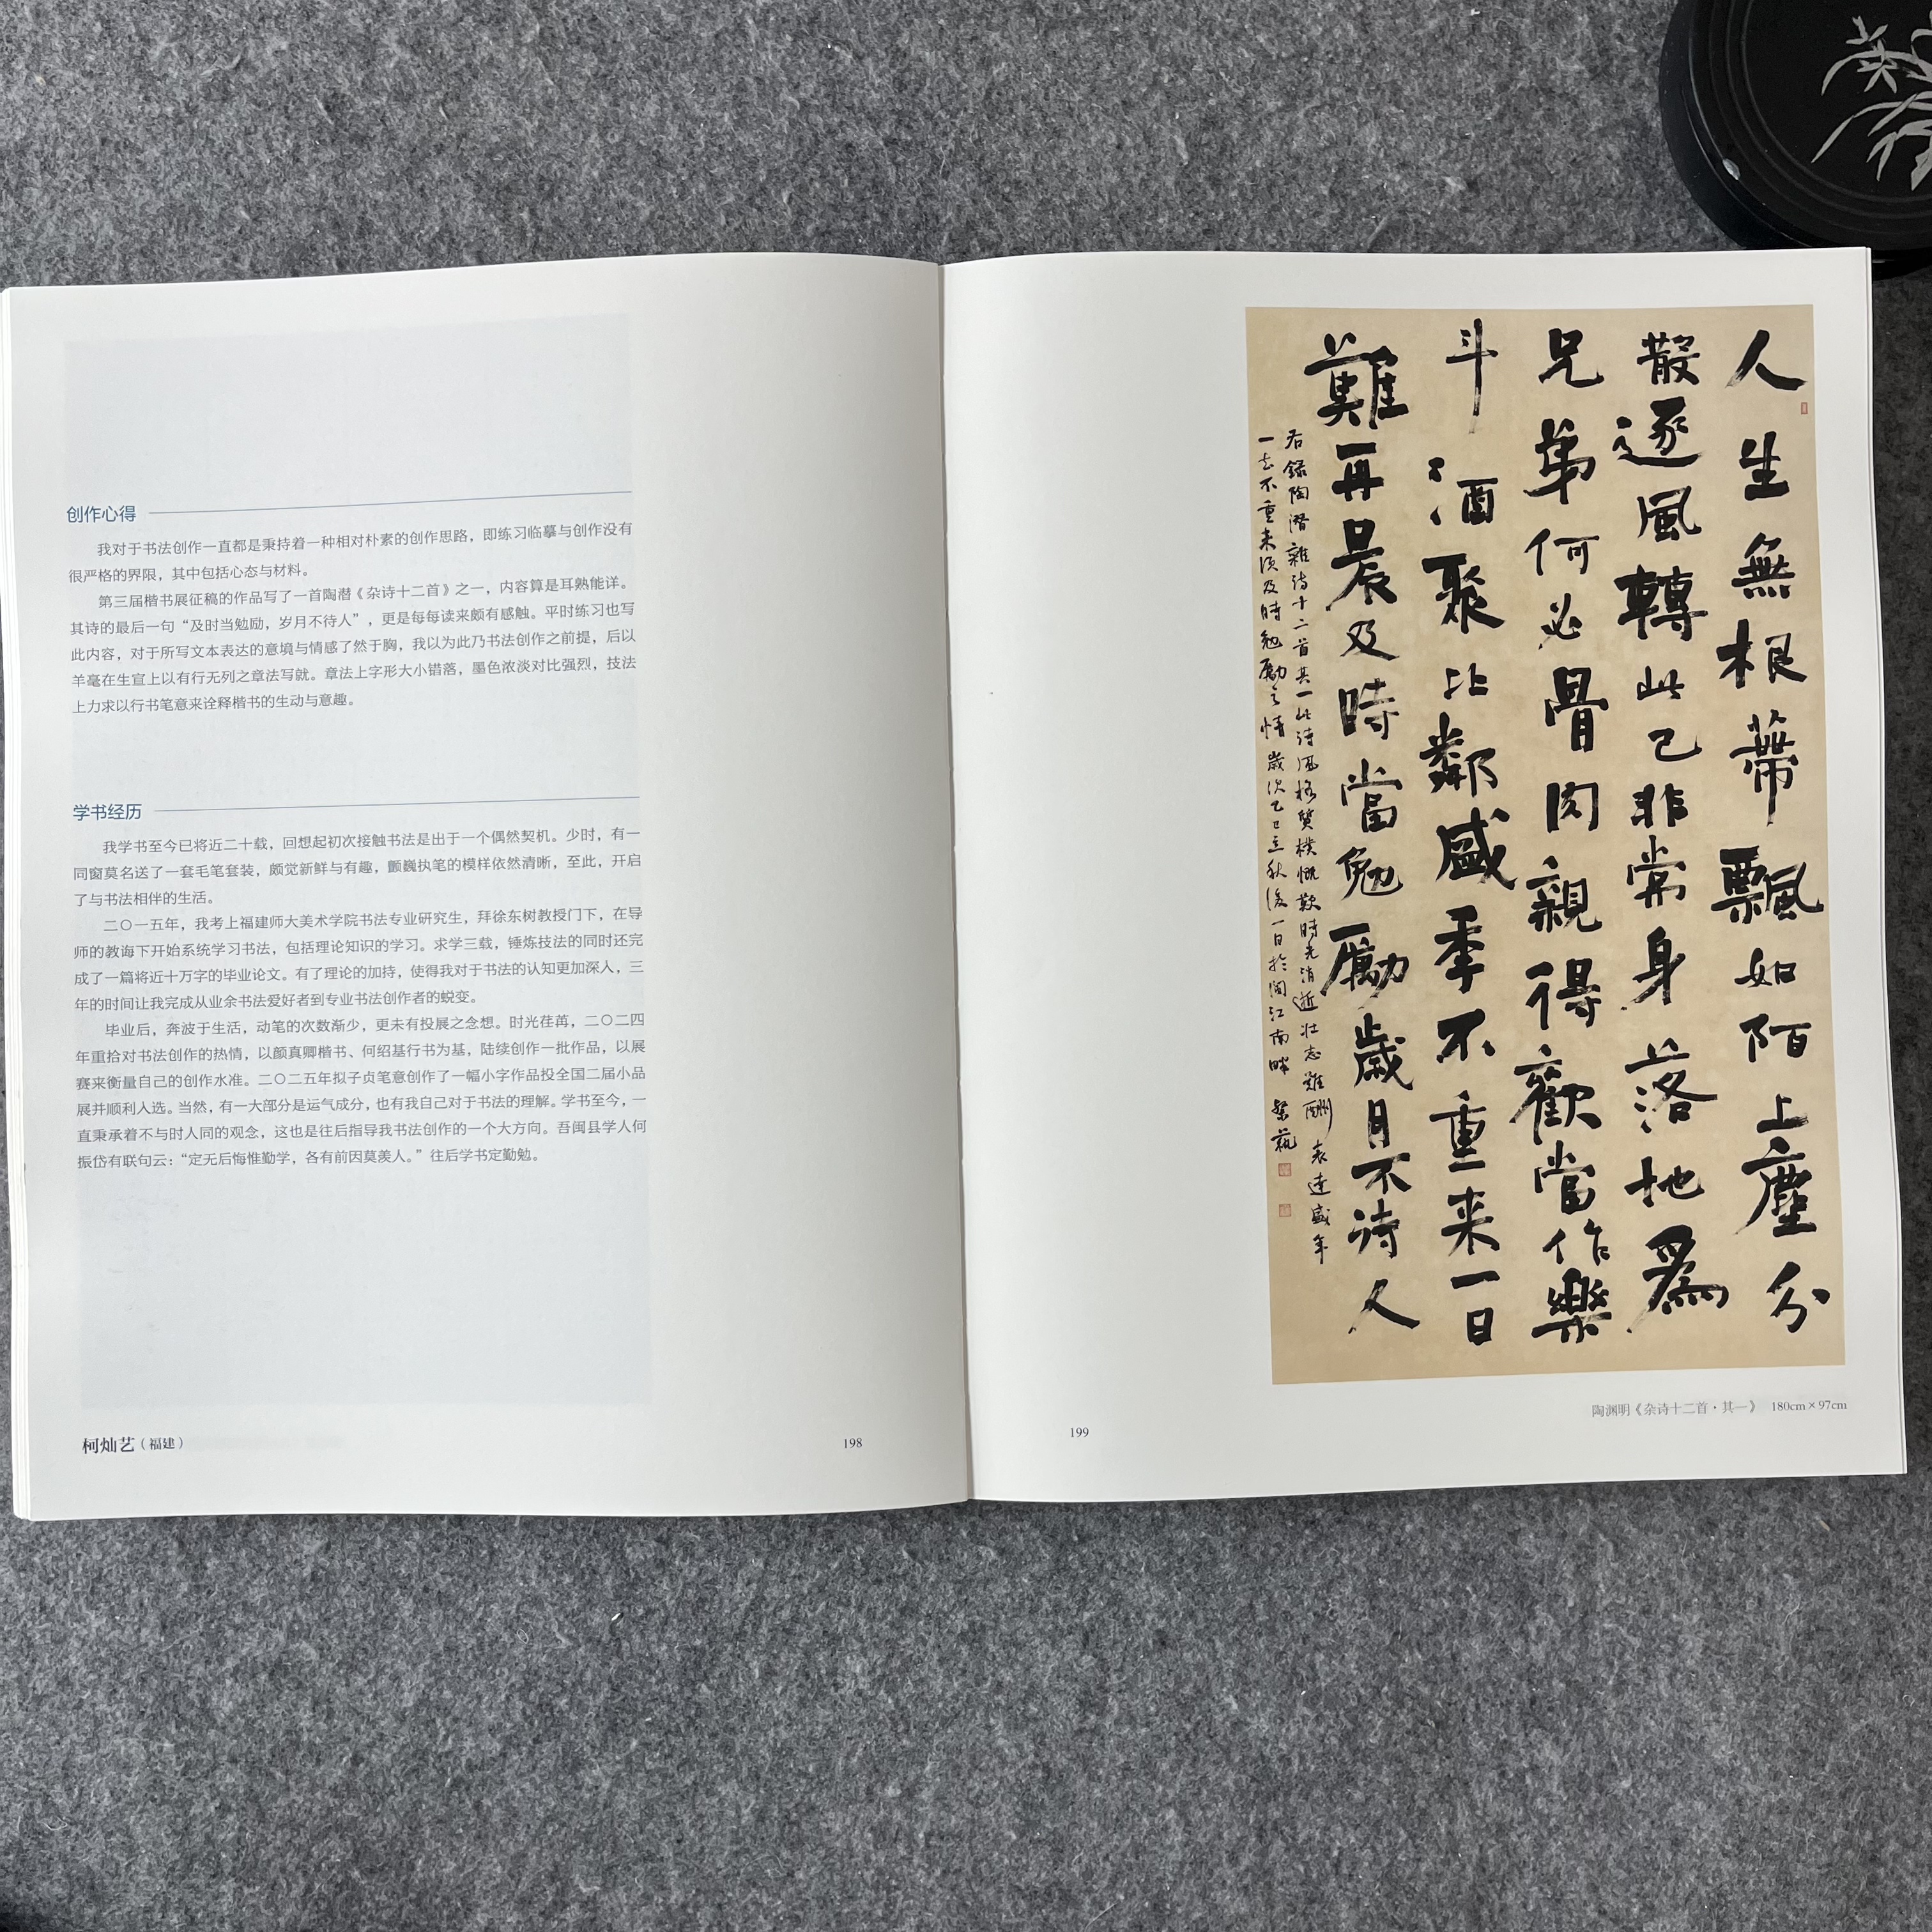 创作心得
我对于书法创作一直都是秉持着一种相对朴素的创作思路，即练习临摹与创作没有
很严格的界限，其中包括心态与材料。
第三届楷书展征稿的作品写了一首陶潜《杂诗十二首》之一，内容算是耳熟能详。
其诗的最后一句“及时当勉励，岁月不待人”，更是每每读来颇有感触。平时练习也写
此内容，对于所写文本表达的意境与情感了然于胸，我以为此乃书法创作之前提，后以
羊毫在生宣上以有行无列之章法写就。章法上字形大小错落，墨色浓淡对比强烈，技法
上力求以行书笔意来诠释楷书的生动与意趣。
学书经历
我学书至今已将近二十载，回想起初次接触书法是出于一个偶然契机。少时，有一
同窗莫名送了一套毛笔套装，颇觉新鲜与有趣，颤巍执笔的模样依然清晰，至此，开启
了与书法相伴的生活。
二〇一五年，我考上福建师大美术学院书法专业研究生，拜徐东树教授门下，在导
师的教诲下开始系统学习书法，包括理论知识的学习。求学三载，锤炼技法的同时还完
成了一篇将近十万字的毕业论文。有了理论的加持，使得我对于书法的认知更加深入，三
年的时间让我完成从业余书法爱好者到专业书法创作者的蜕变。
毕业后，奔波于生活，动笔的次数渐少，更未有投展之念想。时光荏苒，二〇二四
年重拾对书法创作的热情，以颜真卿楷书、何绍基行书为基，陆续创作一批作品，以展
赛来衡量自己的创作水准。二〇二五年拟子贞笔意创作了一幅小字作品投全国二届小品
展并顺利入选。当然，有一大部分是运气成分，也有我自己对于书法的理解。学书至今，一
直秉承着不与时人同的观念，这也是往后指导我书法创作的一个大方向。吾闽县学人何
振岱有联句云：“定无后悔惟勤学，各有前因莫羡人。”往后学书定勤勉。
柯灿艺（福建）
198
人生無根蒂飄如陌上塵分
散逐風轉此已非常身落地為
兄弟何必骨肉親得歡當作樂
斗酒聚比鄰盛季不重来一日
難再晨及時當勉勵歲月不待人
右録陶潛雜詩十二首其一此詩風格質樸慨歎時光消逝壯志難酬表達盛年
一去不重来須及時勉勵之情歲次乙巳立秋後一日於閩江南畔燦藝
199
陶渊明《杂诗十二首·其一》 180cm×97cm